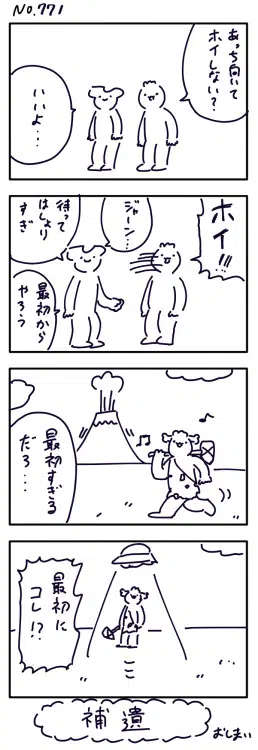 NO.771
あっち向いて
ホイしない?
いいよ...
ホイ!!!
ジャーン...
待って
はしょり
すぎ
最初から
やろう
最初すぎる
だろ...
最初に
コレ!?
補遺
おしまい